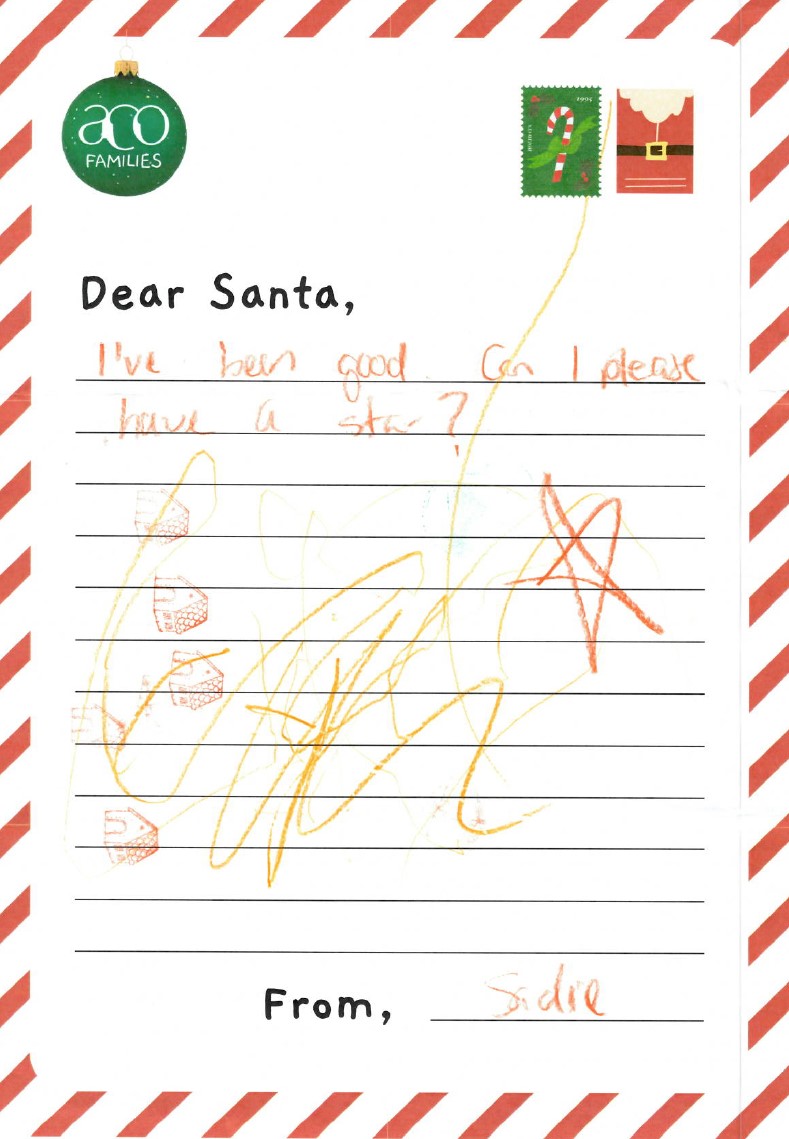 aco
FAMILIES
1995
Dear Santa,
I've been good. Can I please
have a star?
From, Sadie